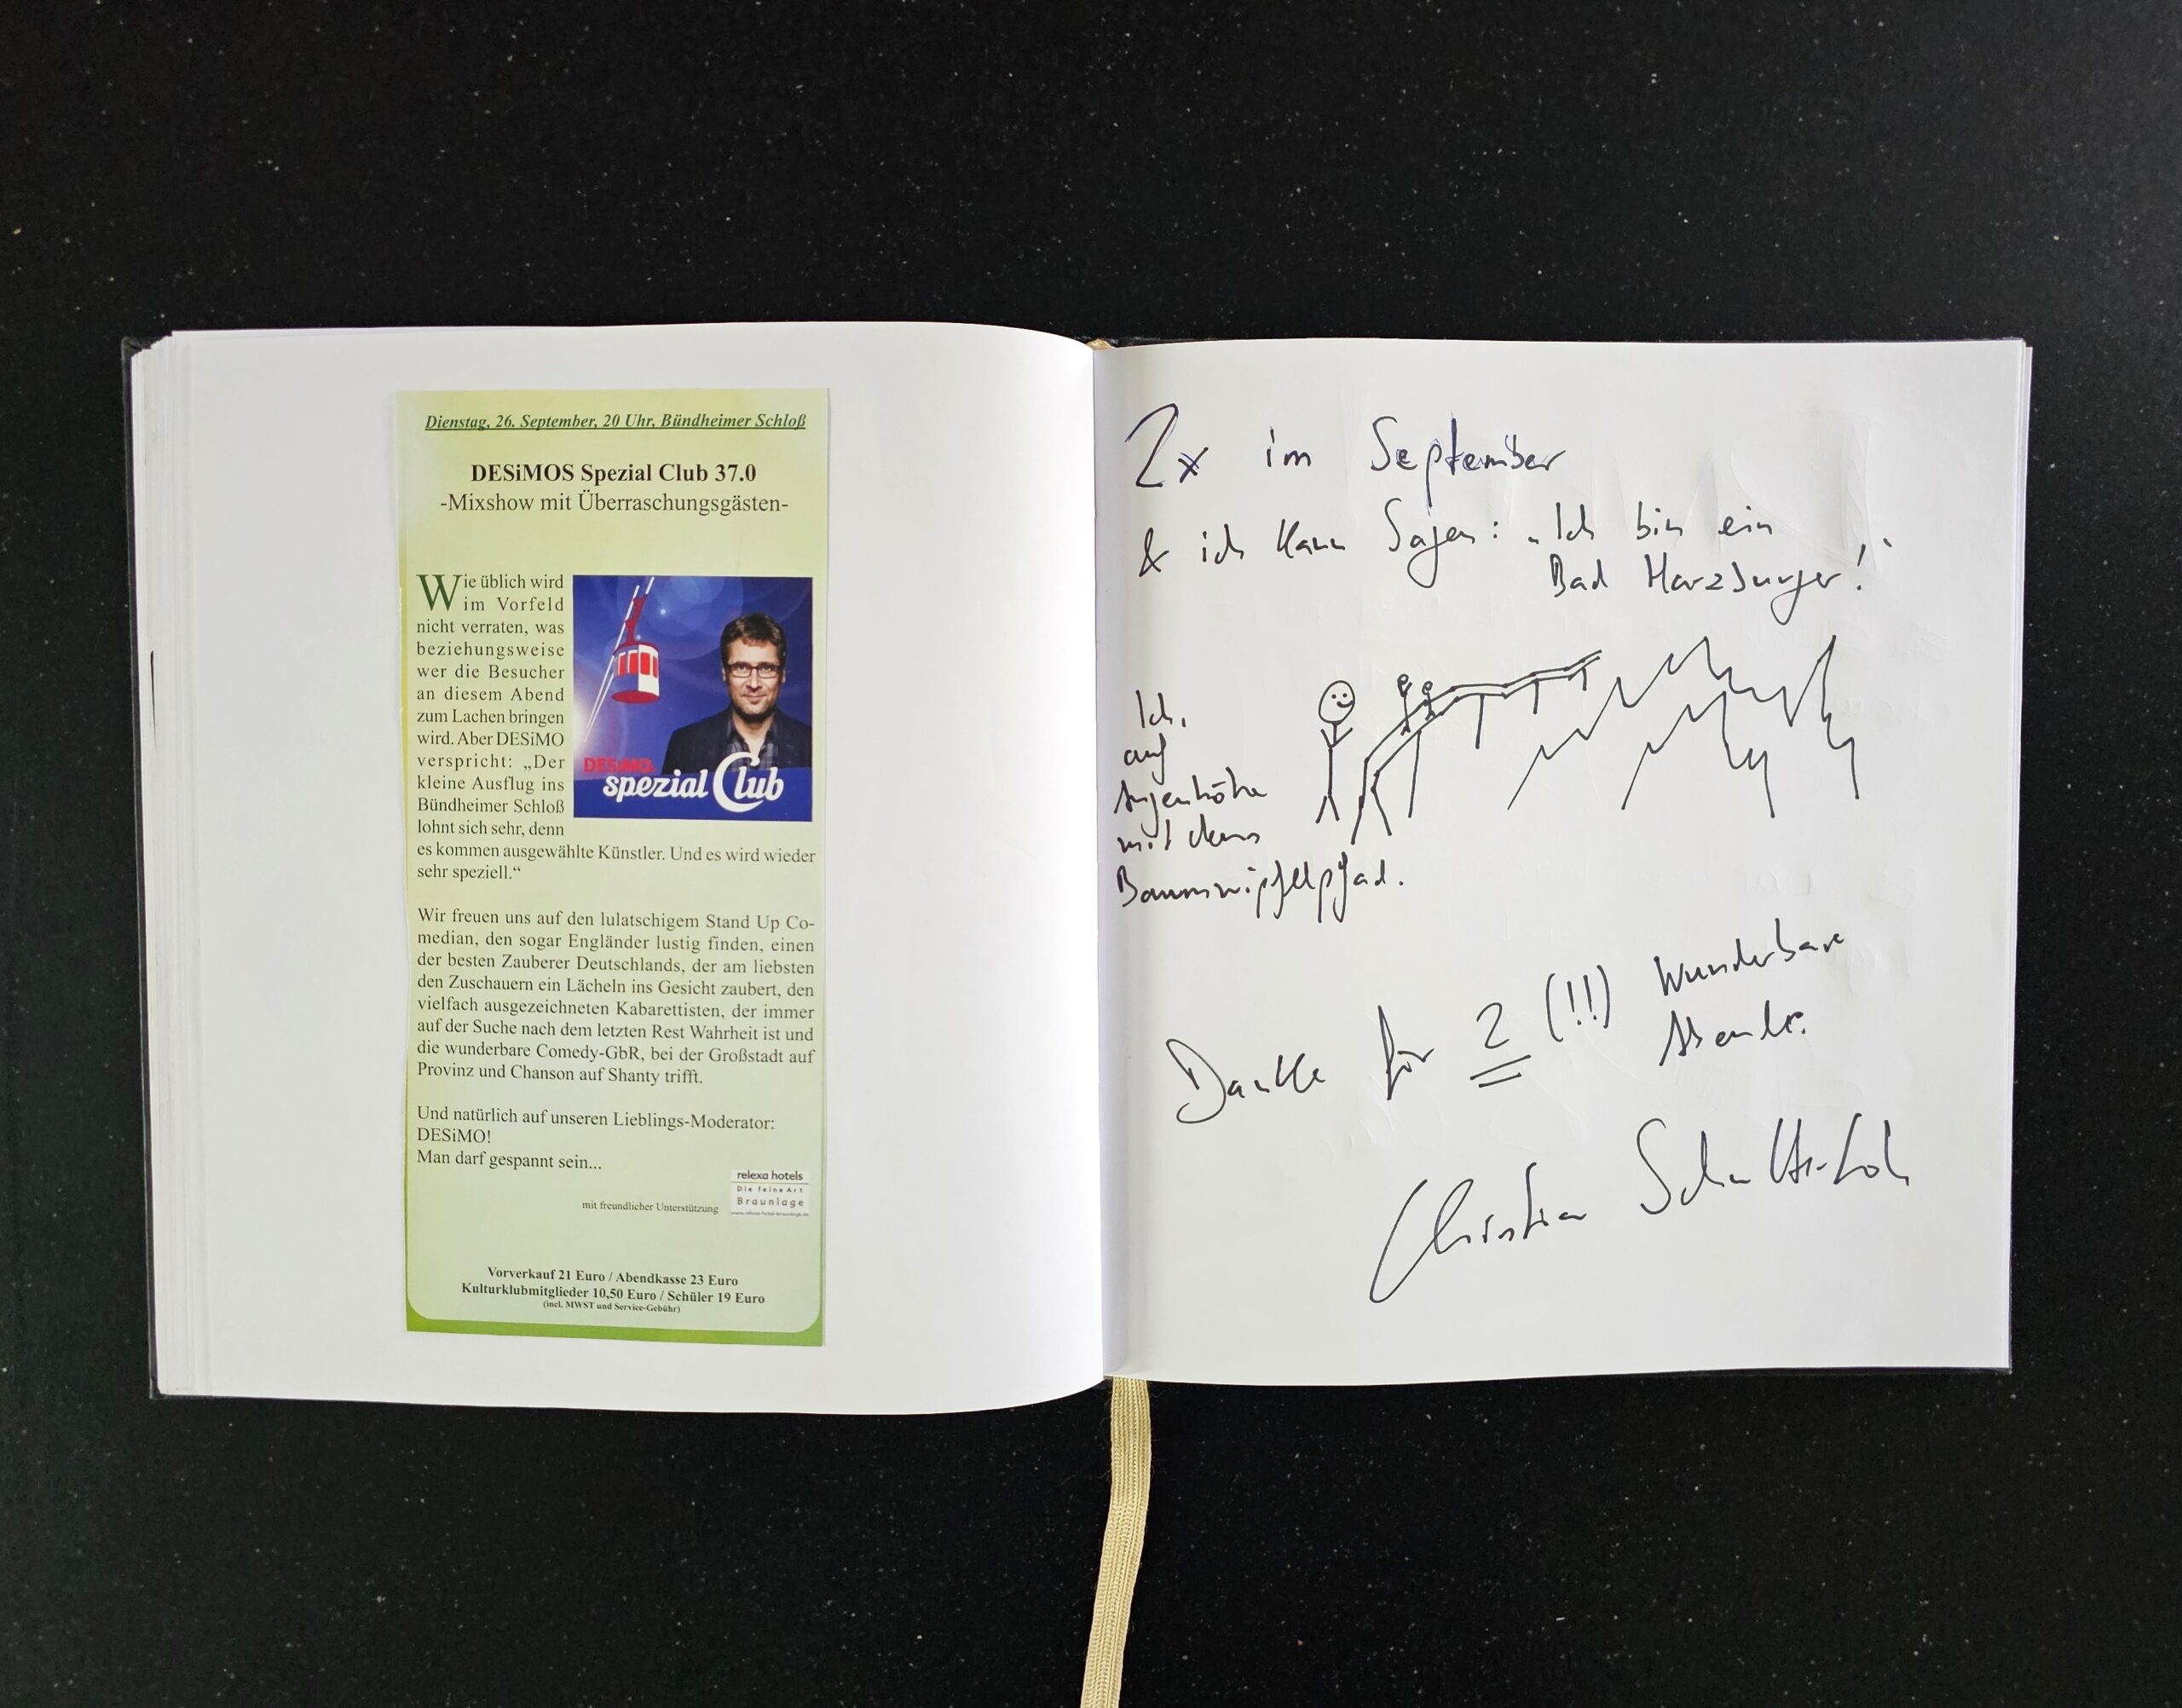 Dienstag, 26. September, 20 Uhr, Bündheimer Schloß
DESiMOS Spezial Club 37.0
-Mixshow mit Überraschungsgästen-
Wie üblich wird
im Vorfeld
nicht verraten, was
beziehungsweise
wer die Besucher
an diesem Abend
zum Lachen bringen
wird. Aber DESiMO
verspricht: „Der
kleine Ausflug ins
Bündheimer Schloß
lohnt sich sehr, denn
es kommen ausgewählte Künstler. Und es wird wieder
sehr speziell.“
DESiMO.
spezial Club
Wir freuen uns auf den lulatschigem Stand Up Co-
median, den sogar Engländer lustig finden, einen
der besten Zauberer Deutschlands, der am liebsten
den Zuschauern ein Lächeln ins Gesicht zaubert, den
vielfach ausgezeichneten Kabarettisten, der immer
auf der Suche nach dem letzten Rest Wahrheit ist und
die wunderbare Comedy-GbR, bei der Großstadt auf
Provinz und Chanson auf Shanty trifft.
Und natürlich auf unseren Lieblings-Moderator:
DESiMO!
Man darf gespannt sein...
mit freundlicher Unterstützung
relexa hotels
Die feine Art
Braunlage
www.relexa-hotel-braunlage.de
Vorverkauf 21 Euro / Abendkasse 23 Euro
Kulturklubmitglieder 10,50 Euro / Schüler 19 Euro
(incl. MWST und Service-Gebühr)
2x im September
& ich kann sagen: „Ich bin ein
Bad Harzburger!“
Ich,
auf
Augenhöhe
mit dem
Baumwipfelpfad.
Danke für 2 (!!) wunderbare
Abende.
Christian Schulte-Loh